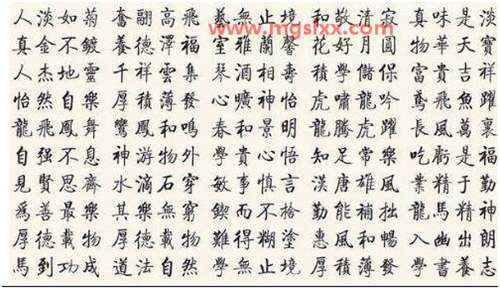 人淡如菊 奮翮高飛 藝無止境 和敬清寂 真味是淡
www.mgsfxx.com
真金不鍍 養德澤福 室雅蘭馨 花好月圓 物華天寶
人杰地靈 千祥雲集 琴酒相壽 積學儲保 富貴吉祥
怡然自樂 厚積薄發 心曠神怡 虎嘯龍吟 鳶飛魚躍
龍飛鳳舞 鸞鳳和鳴 春和景明 龍騰虎躍 長風萬裏
自强不息 神游物外 學貴心悟 知足常樂 吃虧是福
見賢思齊 水滴石穿 敏事慎言 漢唐雄風 業精于勤
爲善最樂 其樂無窮 鍥而不捨 勤能補拙 龍馬精神
厚德載物 厚德載物 難得糊塗 惠風和暢 入幽出朗
馬到功成 道法自然 學無止境 厚積薄發 學書養志